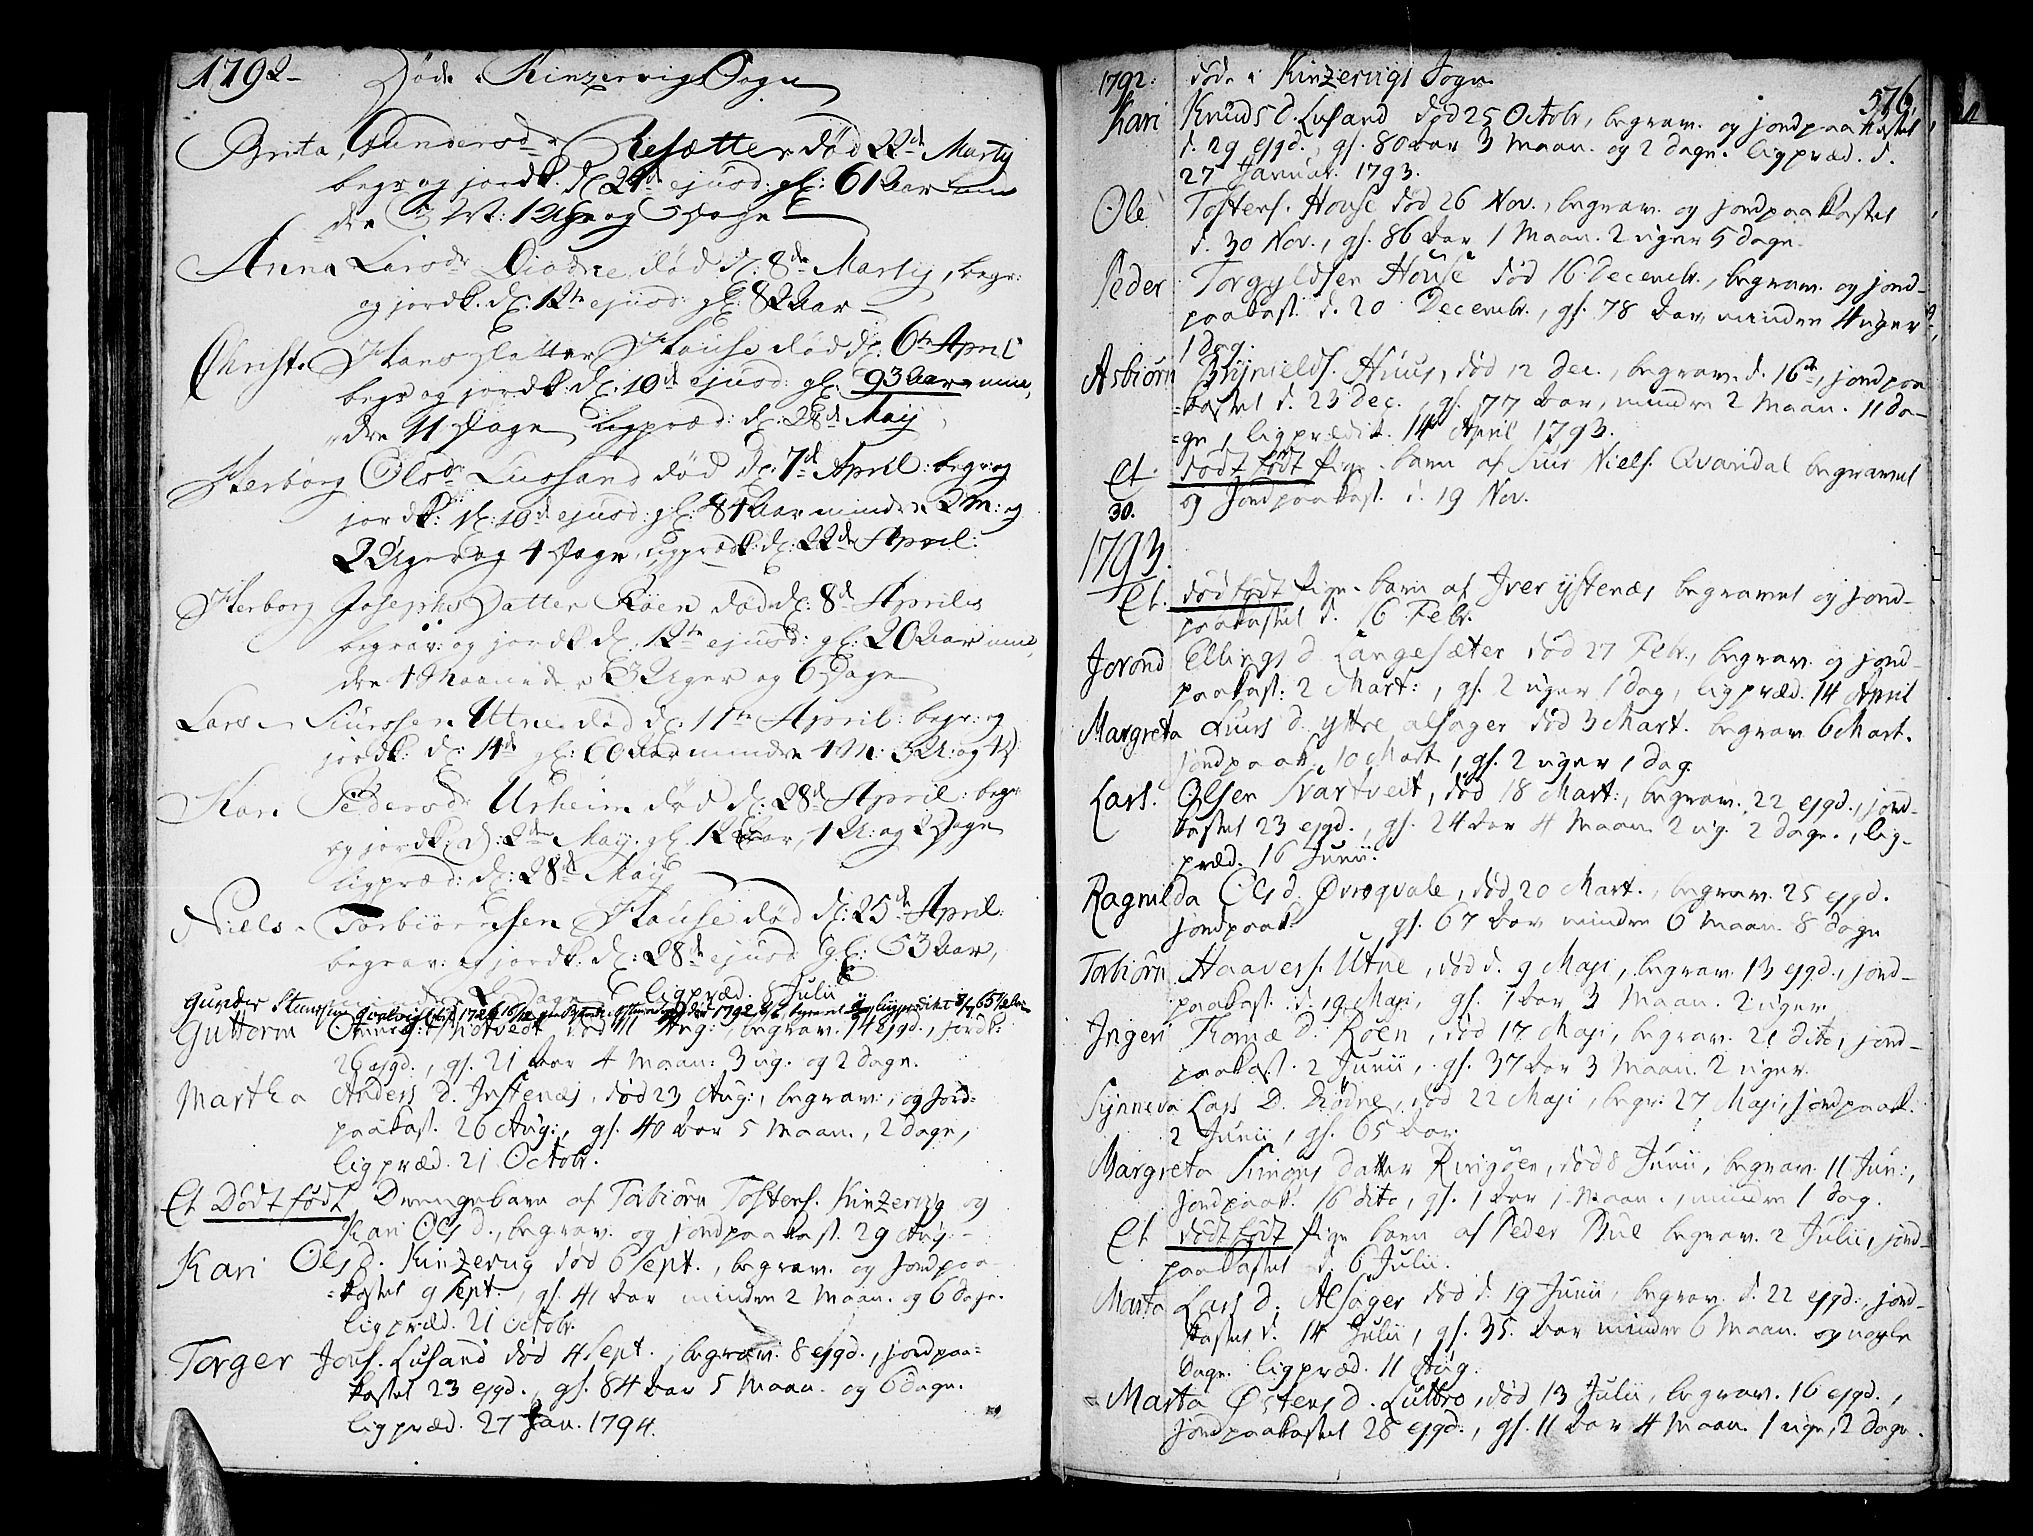 1792 -
Døde i Kinzervig Sogn
Brita Gundersdr Resætter død 22de Martij
begr og jordk. d: 24de ejusd: gl: 61 Aar min
dre 1 Uge og 5 Dage
Anna Larsdr Diødne død d: 8de Martij, begr:
og jordk. d: 12te ejusd: gl: 82 Aar -
Christi Hans Datter Hause død d: 6te April
begr og jordk. d: 10de ejusd: gl: 93 Aar min,
dre 11 Dage Ligpræd: d: 28de Maij
Herborg Olsdr Lussand død d: 7de April: begr: og
jordk: d: 10de ejusd: gl: 84 Aar mindre 2 M: og
2 Uger og 4 Dage, ligpræd: d: 22de April:
Herborg Josephs Datter Röen død d: 8de Aprilis
begrav: og jordk d: 12te ejusd: gl: 20 Aar min,
dre 4 Maaneder 3 Uger og 6 Dage
Lars Siurssen Utne død d: 11te April: begr: og
jordk: d: 14de gl: 60 Aar mindre 4 M: 3 U: og
Kari Pedersdr Urheim død d: 28de April: begr
og jordk: d: 2den Maij gl. 12 Aar, 1 U: og 2 Dage
ligpræd: d: 28de Maij
Niels Torbiörnsen Hause død d: 25de April:
begrav: og jordk: d: 28de ejusd gl: 53 Aar,
Dage ligpræd. 8 Julii
Gunder
Guttorm død 11 Aug: begrav. 14 ejgd., jordk:
26 ejgd., gl. 21 Aar 4 Maan: 3 ug. og 2 dage.
Martha Anders d. Jnstenæs, død 23 Aug:, begrav:, og jord-
paakast. 26 Aug:, gl. 40 Aar 5 Maan., 2 dage,
ligpræd. 21 Octobr.
Et Dødt født Drengebarn af Torbiörn Tostens. Kinzervig og
Kari Ols d., begrav. og jordpaakast. 29 Aug. -
Kari Ols D. Kinzervig død 6 Sept., begrav. og jordpaa-
=kastet 9 Sept., gl. 41 Aar mindre 2 Maan. og 6 dage.
ligpræd. 21 Octobr.
Torger Jons. Lusand død 4 Sept., begrav. 8 ejgd., jordpaa=
kastet 23 ejgd., gl. 84 Aar 5 Maan. og 6 dage.
ligpræd. 27 Jan. 1794.
1792: døde i Kinzervigs Sogn.
576
Kari Knuds d. Lusand død 25 Octobr, begrav. og jordpaakastet
d. 29 ejgd., gl. 80 Aar 3 Maan. og 2 dage. ligpræd. d.
27 Januar. 1793.
Ole Tostens. House død 26 Nov., begrav. og jordpaakastet
d. 30 Nov., gl. 86 Aar 1 Maan. 2 uger 5 dage.
Peder Torgyldsen House død 16 Decembr., begrav. og jord-
paakast. d. 20 Decembr., gl. 78 Aar mindre 4 uger
1 Dag.
Asbiörn Brynields. Huus, død 12 Dec., begrav. d. 16de, jordpaa
=kastet d. 23 Dec., gl. 77 Aar, mindre 2 Maan. 11 da-
=ge, ligprædik. 14 April 1793.
Et dødt født Pige-barn af Siur Niels. Qvandal begravet
30.
og Jordpaakast. d. 19 Nov.
1793.
Et. død født Pige-barn af Jver ystenæs begravet og jord-
paakastet d. 16 Febr.
Jorond Ellings d Langesæter død 27 Febr., begrav. og jord-
paakast: 2 Mart:, gl. 2 uger 1 dag, ligpræd. 14 April
Margreta Siurs d. yttre alsager død 3 Mart. begrav 6 Mart.
jordpaak. 10 Mart, gl. 2 uger 1 dag.
Lars. Olsen Svartveit, død 18 Mart:, begrav. 22 ejgd., jord-
kastet 23 ejgd., gl. 24 Aar 4 Maan. 2 ug. 2 dage., lig-
præd. 16 Junii.
Ragnilda Ols d. Øvreqvale, død 20 Mart., begrav. 25 ejgd.
jordpaak. gl. 67 Aar mindre 6 Maan. 8 dage
Torbiörn Haavers. Utne, død d. 9 Maji, begrav. 13 ejgd., jord-
paakast. d. 19 Maji, gl. 1 Aar 3 Maan. 2 uger
Jngeri Thomæ D. Roen, død 17 Maji, begrav. 21 dito, jord-
paakast. 2 Junii, gl. 37 Aar 3 Maan. 2 uger.
Synneva Lars D. Rödne, død 22 Maji, begr: 27 Maji, jordpaak.
2 Junii, gl. 65 Aar
Margreta Simons datter Ringöen, død 8 Junii, begrav. 11 Jun:,
jordpaak. 16 dito, gl. 1 Aar 1 Maan., mindre 1 dag.
Et dødt født Pige barn af Peder Bue begrav. 2 Julii, jord-
paakastet d. 6 Julii.
Marta Lars D. Alsager død d. 19 Junii, begrav. d. 22 ejgd., jord-
kastet d. 14 Julii, gl. 35. Aar mindre 6 Maan. og nogle
Dage. ligpræd. 11 Aug.
Marta Østens d. Lutbro, død 13 Julii, begrav. 16 ejgd.,
jordpaakastet 28 ejgd., gl. 11 Aar 4 Maan. 1 uge, 2 dage.